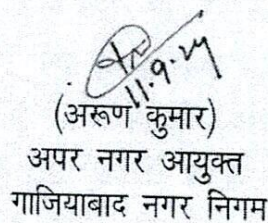 11.9.24
(अरूण कुमार)
अपर नगर आयुक्त
गाजियाबाद नगर निगम